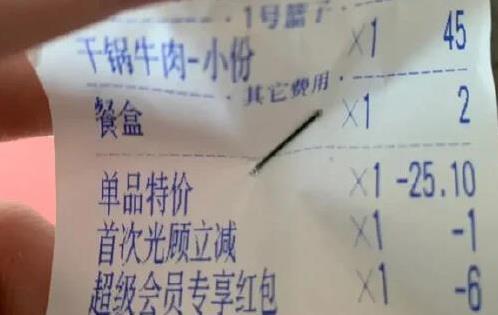 1号篮子
干锅牛肉-小份 X1 45
其它费用
餐盒 X1 2
单品特价 X1 -25.10
首次光顾立减 X1 -1
超级会员专享红包 X1 -6